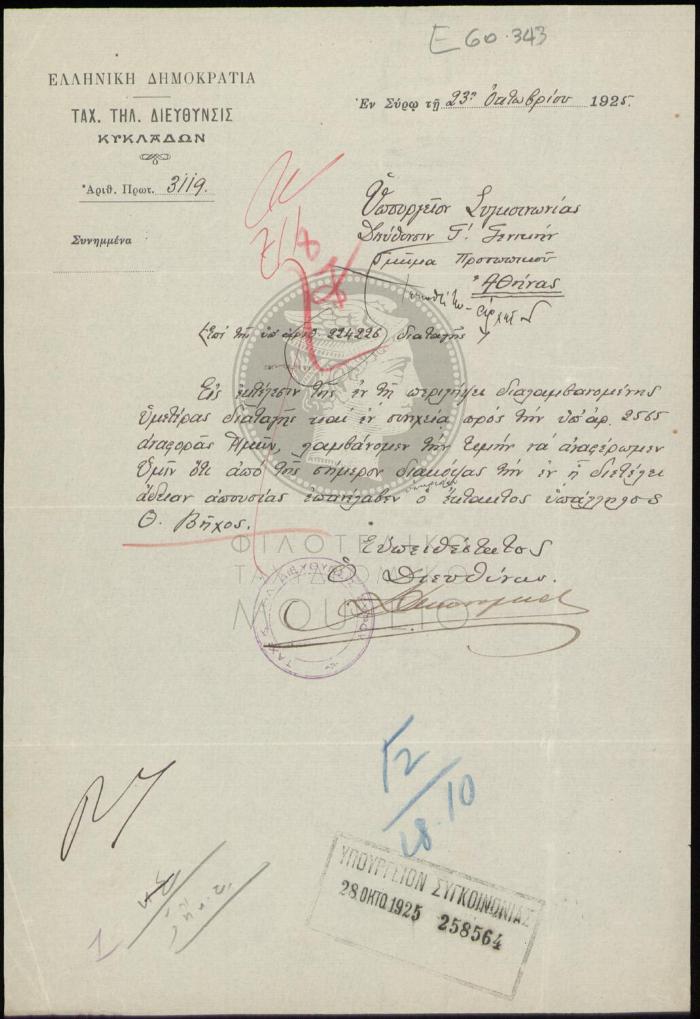 Ε 60.343
ΕΛΛΗΝΙΚΗ ΔΗΜΟΚΡΑΤΙΑ
ΤΑΧ. ΤΗΛ. ΔΙΕΥΘΥΝΣΙΣ
ΚΥΚΛΑΔΩΝ
Ἐν Σύρῳ τῇ 23ῃ Ὀκτωβρίου 1925.
Ἀριθ. Πρωτ. 3119.
Συνημμένα
Ὑπουργεῖον Συγκοινωνίας
Διεύθυνσιν Γ' Γενικήν
Τμῆμα Προσωπικοῦ
Ἀθήνας
Ἐπὶ τῆς ὑπ' ἀριθ. 224226 διαταγῆς
Εἰς ἐκτέλεσιν τῆς ἐν τῇ περιλήψει διαλαμβανομένης
Ὑμετέρας διαταγῆς καὶ ἐν συνεχείᾳ πρὸς τὴν ὑπ' ἀρ. 2565
ἀναφορὰς Ἡμῶν, λαμβάνομεν τὴν τιμὴν νὰ ἀναφέρωμεν
Ὑμῖν ὅτι ἀπὸ τῆς σήμερον διακόψας τὴν ἐν ᾗ διετέλει
ἄδειαν ἀπουσίας ἐπανέλαβεν ὑπηρεσίαν ὁ ἔκτακτος ὑπάλληλος
Θ. Βῆχος.
Εὐπειθέστατος
Ὁ Διευθύνας.
ΦΙΛΟΤΕΛΙΚΟ
ΤΑΧΥΔΡΟΜΙΚΟ
ΜΟΥΣΕΙΟ
Γ2
28.10
ΥΠΟΥΡΓΕΙΟΝ ΣΥΓΚΟΙΝΩΝΙΑΣ
28.ΟΚΤΟ.1925 258564